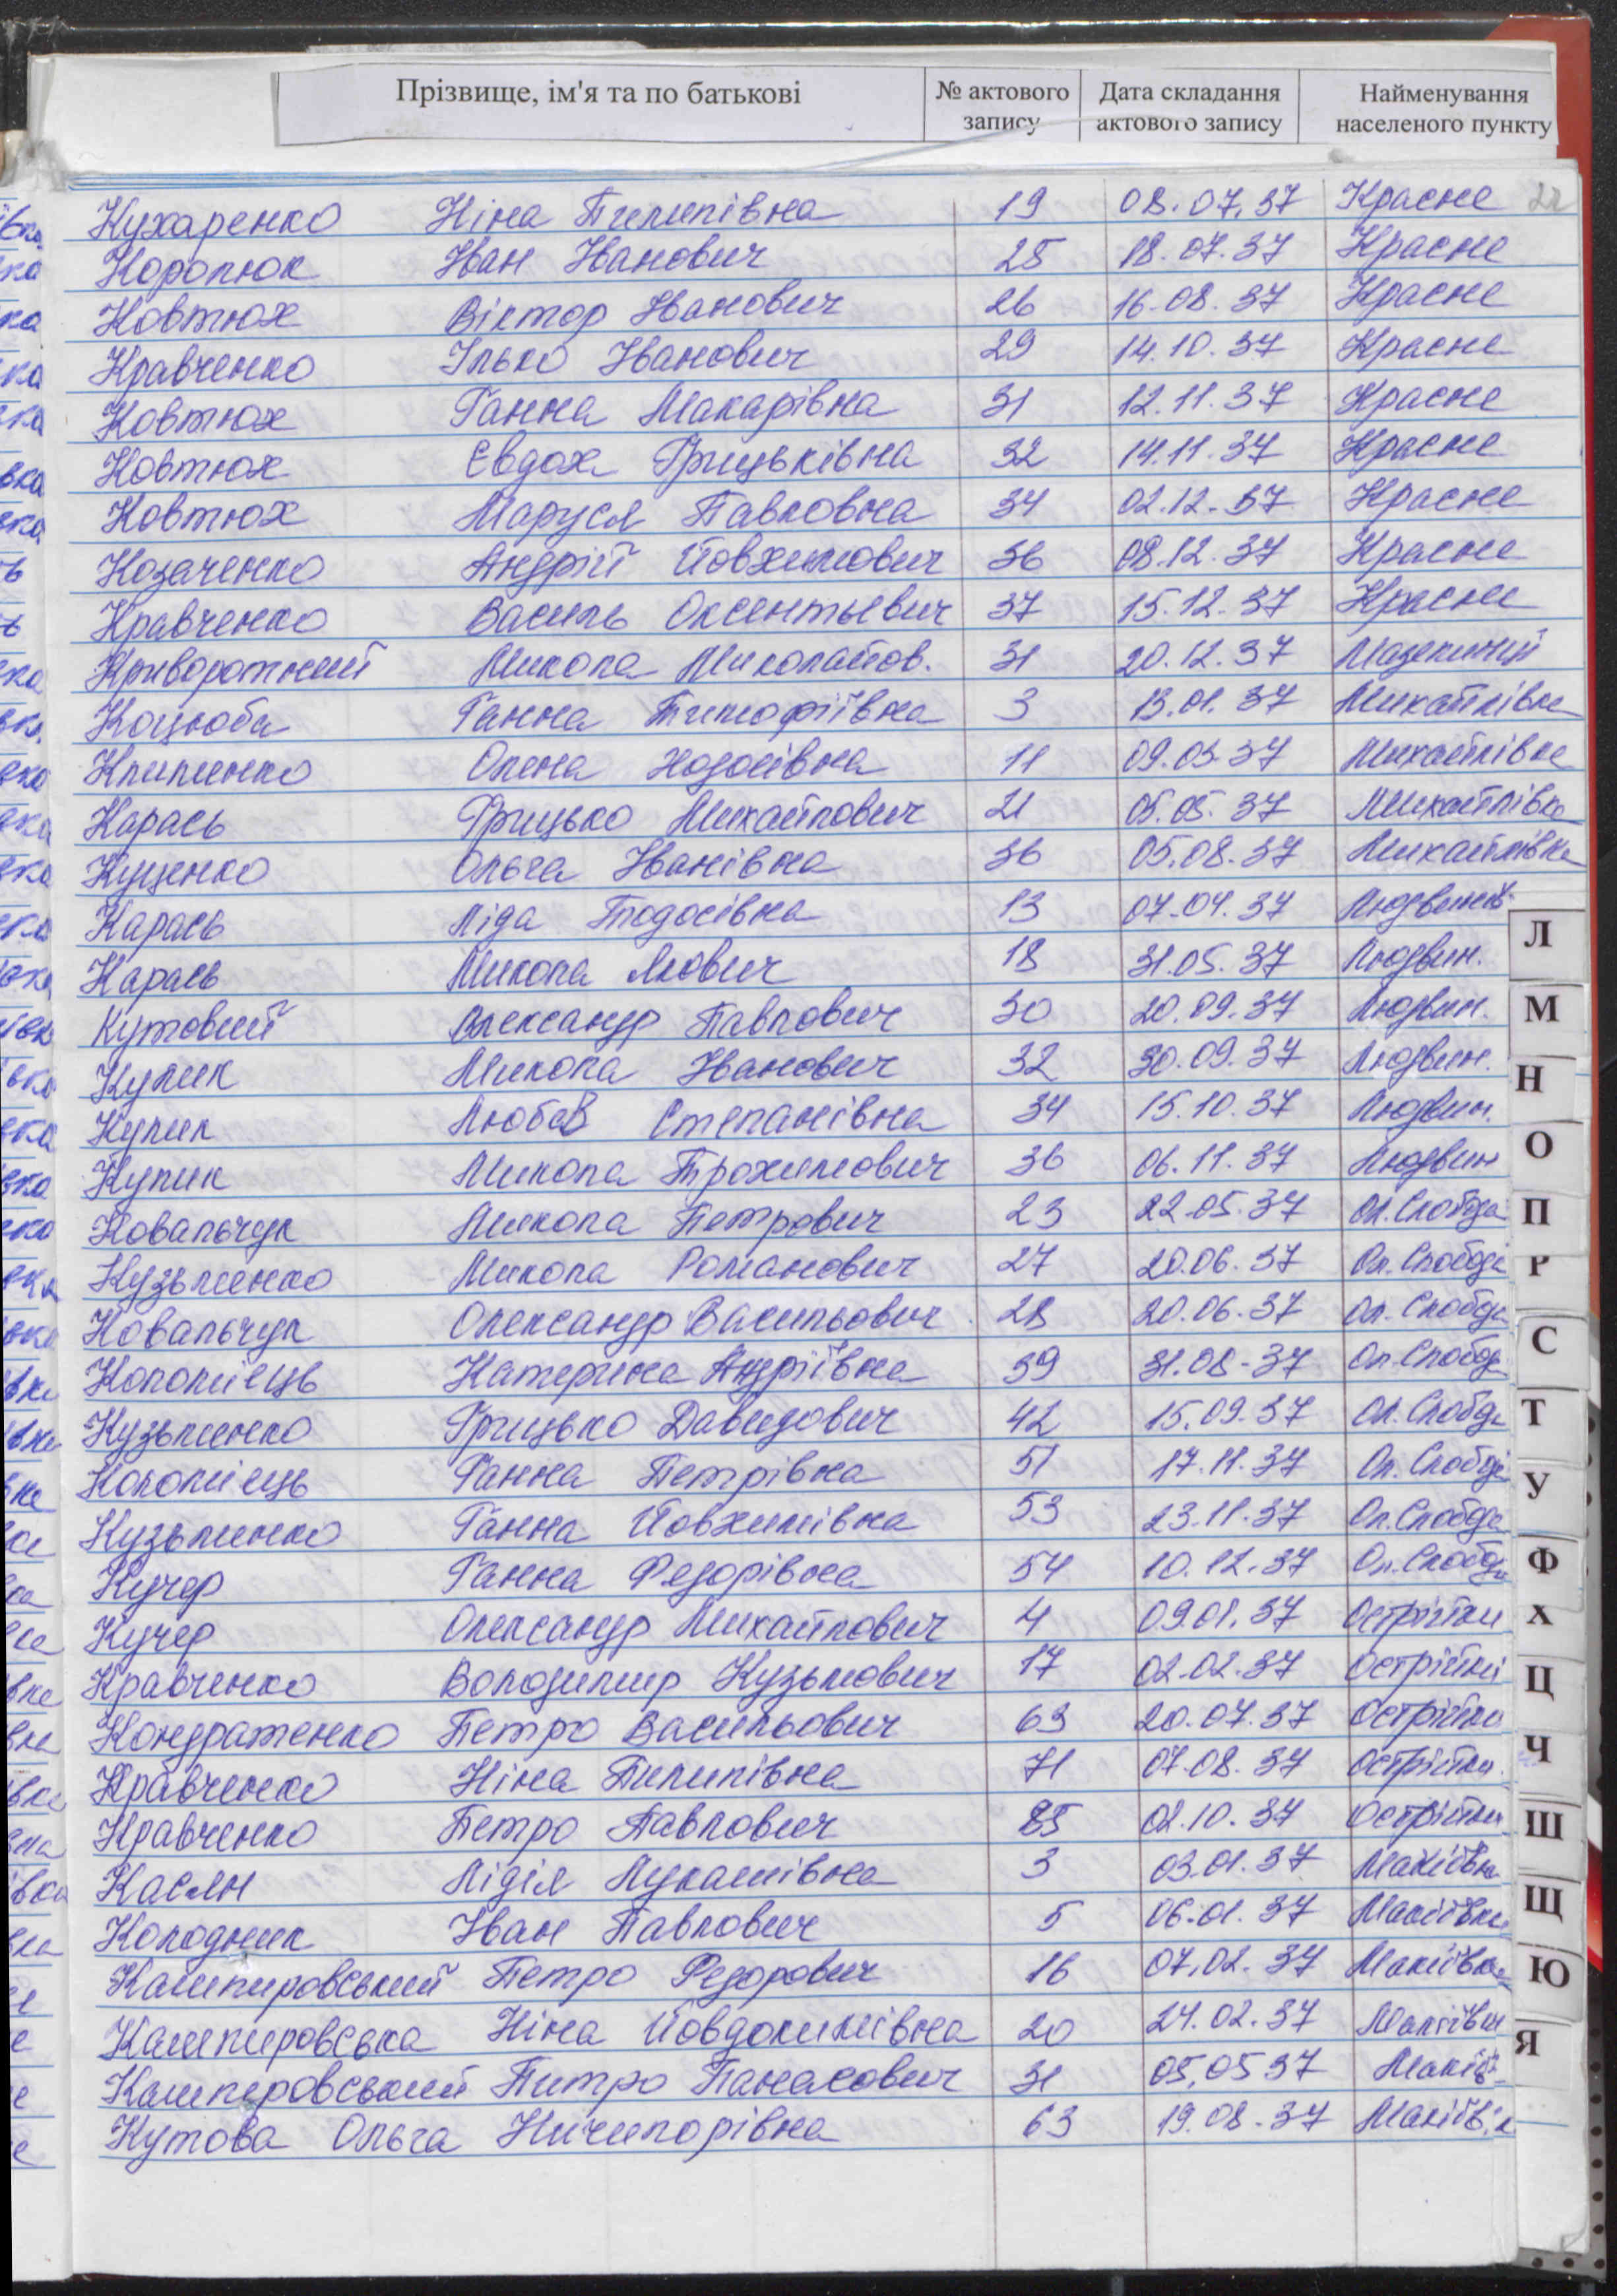 Прізвище, ім'я та по батькові № актового запису Дата складання актового запису Найменування населеного пункту
22
Кухаренко Ніна Пилипівна 19 08.07.37 Красне
Королюк Іван Іванович 25 18.07.37 Красне
Ковтюх Віктор Іванович 26 16.08.37 Красне
Кравченко Ілько Іванович 29 14.10.37 Красне
Ковтюх Ганна Макарівна 31 12.11.37 Красне
Ковтюх Євдоха Грицьківна 32 14.11.37 Красне
Ковтюх Маруся Павловна 34 02.12.37 Красне
Козаченко Андрій Йовхимович 36 08.12.37 Красне
Кравченко Василь Оксентьевич 37 15.12.37 Красне
Криворотний Микола Миколайов. 31 20.12.37
Коцюба Ганна Тимофіївна 3 13.01.37 Михайлівка
Клименко Олена 11 09.03.37 Михайлівка
Карась Грицько Михайлович 21 05.05.37 Михайлівка
Куценко Ольга Іванівна 36 05.08.37 Михайлівка
Карась Ліда Тодосівна 13 07.04.37
Карась Микола Якович 18 31.05.37 Людвин.
Кутовий Олександр Павлович 30 20.09.37 Людвин.
Кулик Микола Іванович 32 30.09.37 Людвин.
Кулик Любов Степанівна 34 15.10.37 Людвин.
Кулик Микола Трохимович 36 06.11.37 Людвин
Ковальчук Микола Петрович 23 22.05.37 Ол. Слобода
Кузьменко Микола Романович 27 20.06.37 Ол. Слобода
Ковальчук Олександр Васильович 28 20.06.37 Ол. Слобода
Коломієць Катерина Андріївна 39 31.08-37 Ол. Слобода
Кузьменко Грицько Давидович 42 15.09.37 Ол. Слобода
Коломієць Ганна Петрівна 51 17.11.37 Ол. Слобода
Кузьменко Ганна Йовхимівна 53 23.11.37 Ол. Слобода
Кучер Ганна Федорівна 54 10.12.37 Ол. Слобода
Кучер Олександр Михайлович 4 09.01.37 Острійки
Кравченко Володимир Кузьмович 17 02.02.37 Острійки
Кондратенко Петро Васильович 63 20.07.37 Острійки
Кравченко Ніна Пилипівна 71 07.08.37 Острійки
Кравченко Петро Павлович 85 02.10.37 Острійки
Касян Лідія Лукашівна 3 03.01.37 Маківка
Колодник Іван Павлович 5 06.01.37 Маківка
Кашпировський Петро Федорович 16 07.02.37 Маківка
Кашпировська Ніна Йовдокимівна 20 24.02.37 Маківка
Кашперовський Питро Панасович 31 05.05 37
Кутова Ольга Ничипорівна 63 19.08-37
Л
М
Н
О
П
Р
С
Т
У
Ф
Х
Ц
Ч
Ш
Щ
Ю
Я